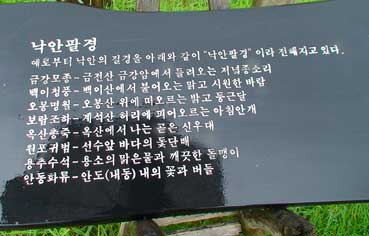 낙안팔경
예로부터 낙안의 절경을 아래와 같이 "낙안팔경" 이라 전해지고 있다.
금강모종 - 금전산 금강암에서 들려오는 저녁종소리
백이청풍 - 백이산에서 불어오는 맑고 시원한 바람
오봉명월 - 오봉산 위에 떠오르는 밝고 둥근달
보람조하 - 제석산 허리에 피어오르는 아침안개
옥산총죽 - 옥산에서 나는 곧은 신우대
원포귀범 - 선수앞 바다의 돛단배
용추수석 - 용소의 맑은물과 깨끗한 돌맹이
안동화류 - 안도(내동) 내의 꽃과 버들